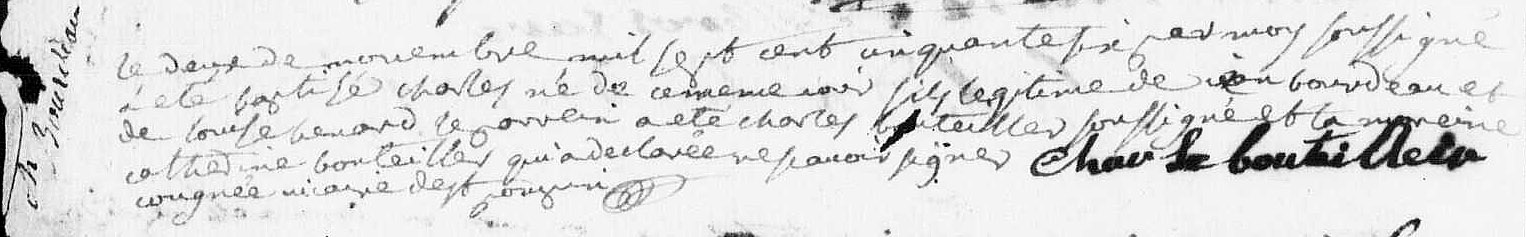 ch Bourdeau
le deux de novembre mil sept cent cinquante six par moy soussigné
a eté baptisé charles né de ce meme jour fils legitime de jean bourdeau et
de louise benard le parrein a eté charles bouteiller soussigné et la mareine
catherine bouteiller qui a declarée ne scavoir signer charle bouteiller
cougnée vicaire de st